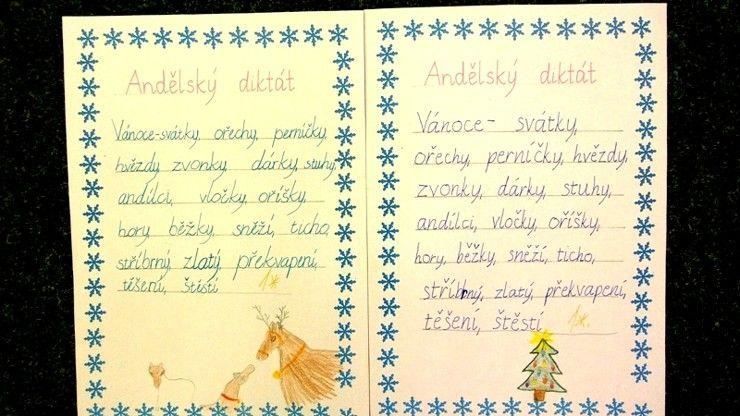 Andělský diktát
Vánoce-svátky, ořechy, perníčky,
hvězdy zvonky, dárky, stuhy,
andílci, vločky, oříšky,
hory, běžky, sněží, ticho,
stříbrný, zlatý, překvapení,
těšení, štěstí 1*
Andělský diktát
Vánoce- svátky,
ořechy, perníčky, hvězdy,
zvonky, dárky, stuhy,
andílci, vločky, oříšky,
hory, běžky, sněží, ticho,
stříbrný, zlatý, překvapení,
těšení, štěstí 1*.